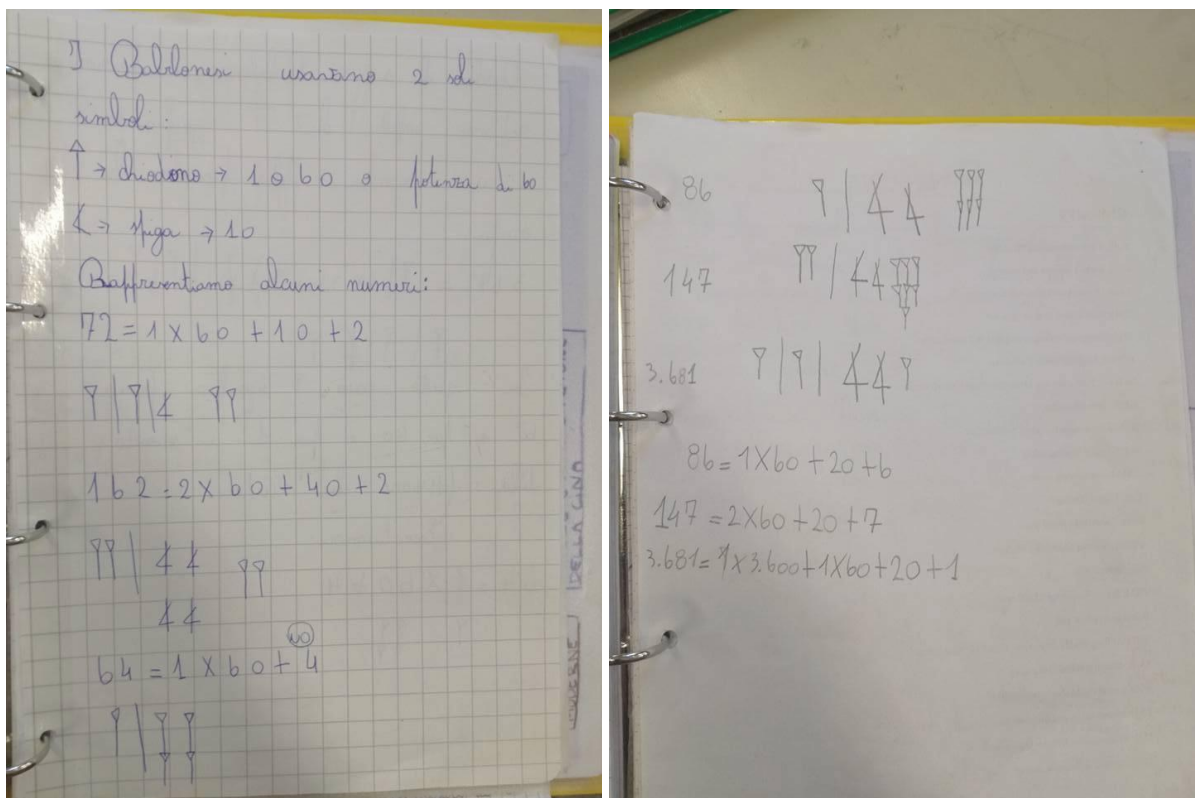 I Babilonesi usavano 2 soli
simboli:
→ chiodino → 1 o 60 o potenza di 60
→ spiga → 10
Rappresentiamo alcuni numeri:
72 = 1 x 60 + 10 + 2
162 = 2 x 60 + 40 + 2
NO
64 = 1 x 60 + 4
DELLA CINA
86
147
3.681
86 = 1 X 60 + 20 + 6
147 = 2 X 60 + 20 + 7
3.681 = 1 x 3.600 + 1 X 60 + 20 + 1